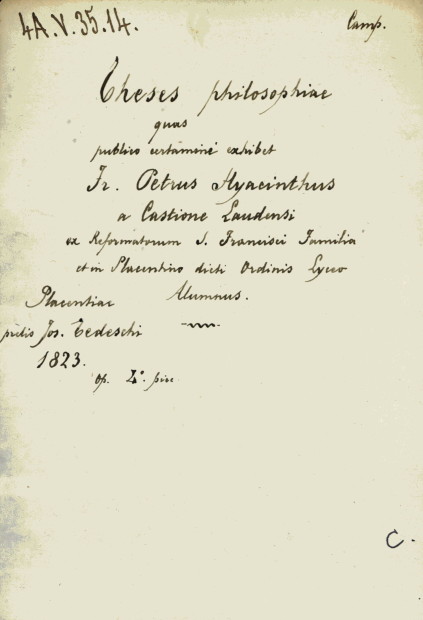 4A.V.35.14.
Camp.
Theses philosophiae
quas
publico certamine exhibet
Fr. Petrus Hyacinthus
a Castione Laudensi
ex Reformatorum S. Francisci Familia
et in Placentino dicti Ordinis Lyceo
Alumnus.
Placentiae
prelis Jos. Tedeschi
1823.
op. 4°. picc.
C.